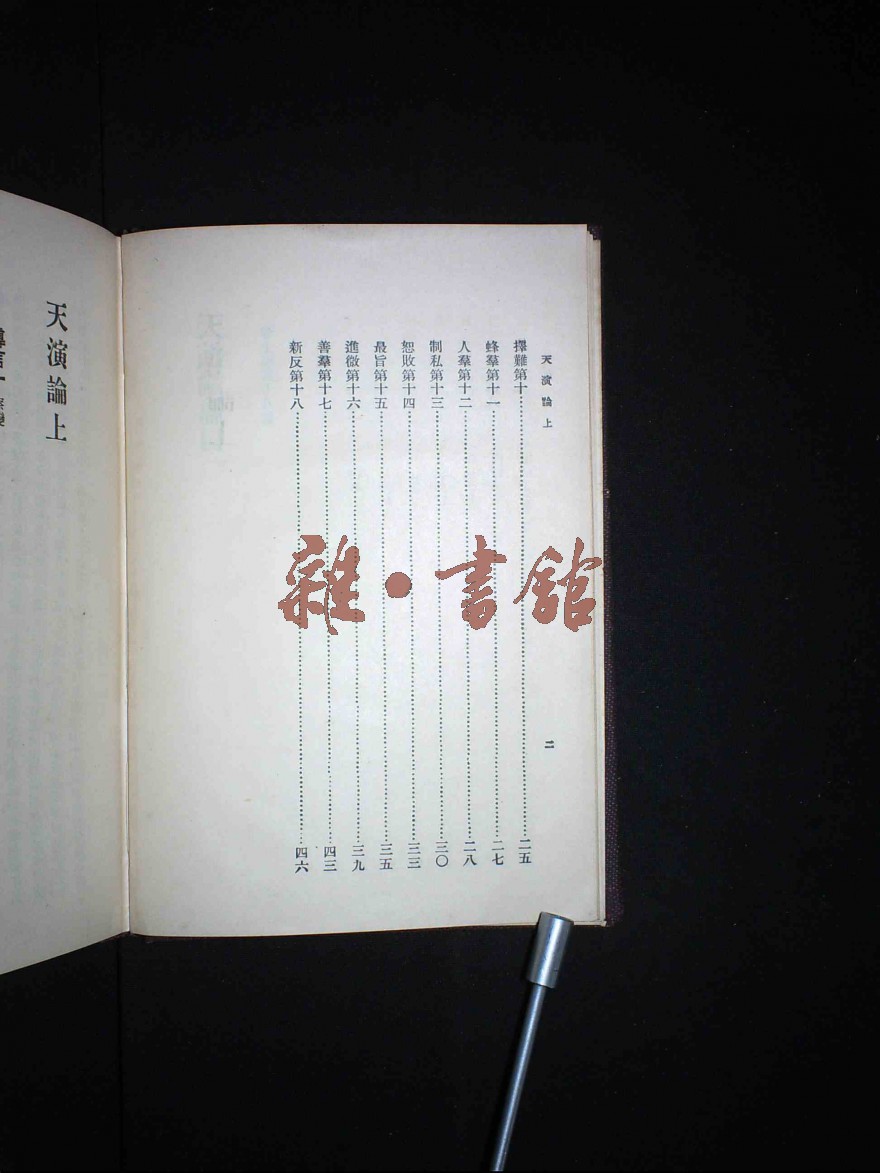 天演論上
二
擇難第十……二五
蜂羣第十一……二七
人羣第十二……二八
制私第十三……三〇
恕敗第十四……三三
最旨第十五……三五
進微第十六……三九
善羣第十七……四三
新反第十八……四六
天演論上
雜·書館